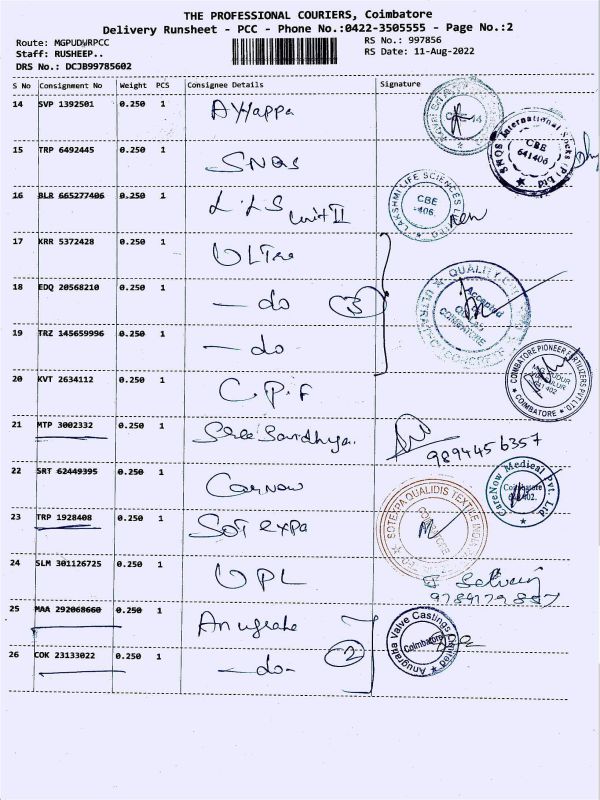 THE PROFESSIONAL COURIERS, Coimbatore
Delivery Runsheet - PCC - Phone No.:0422-3505555 - Page No.:2
Route: MGPUDWRPCC
RS No.: 997856
Staff: RUSHEEP..
RS Date: 11-Aug-2022
DRS No.: DCJB99785602
S No Consignment No Weight PCS Consignee Details Signature
14 SVP 1392501 0.250 1 Ayyappa
15 TRP 6492445 0.250 1 SNQS
SNQS International Socks (P) Ltd CBE 641406
16 BLR 665277406 0.250 1 L.L.S Unit II
LAKSHMI LIFE SCIENCES CBE -406
17 KRR 5372428 0.250 1 ULTra
18 EDQ 20568210 0.250 1 -do 3
QUALITY Accepted COIMBATORE
19 TRZ 145659996 0.250 1 -do-
20 KVT 2634112 0.250 1 C.P.F
COIMBATORE PIONEER FERTILIZERS PVT LTD COIMBATORE
21 MTP 3002332 0.250 1 Sree Sandhya.
9894456357
22 SRT 62449395 0.250 1 Carnow
CareNow Medical Pvt. Ltd Coimbatore 641 402.
23 TRP 1928408 0.250 1 SOT expa
SOTEXPA QUALIDIS TEXTILE COIMBATORE
24 SLM 301126725 0.250 1 UPL
25 MAA 292068660 0.250 1 Anugraha
Anugraha Valve Castings Limited Coimbatore
26 COK 23133022 0.250 1 -do- 2